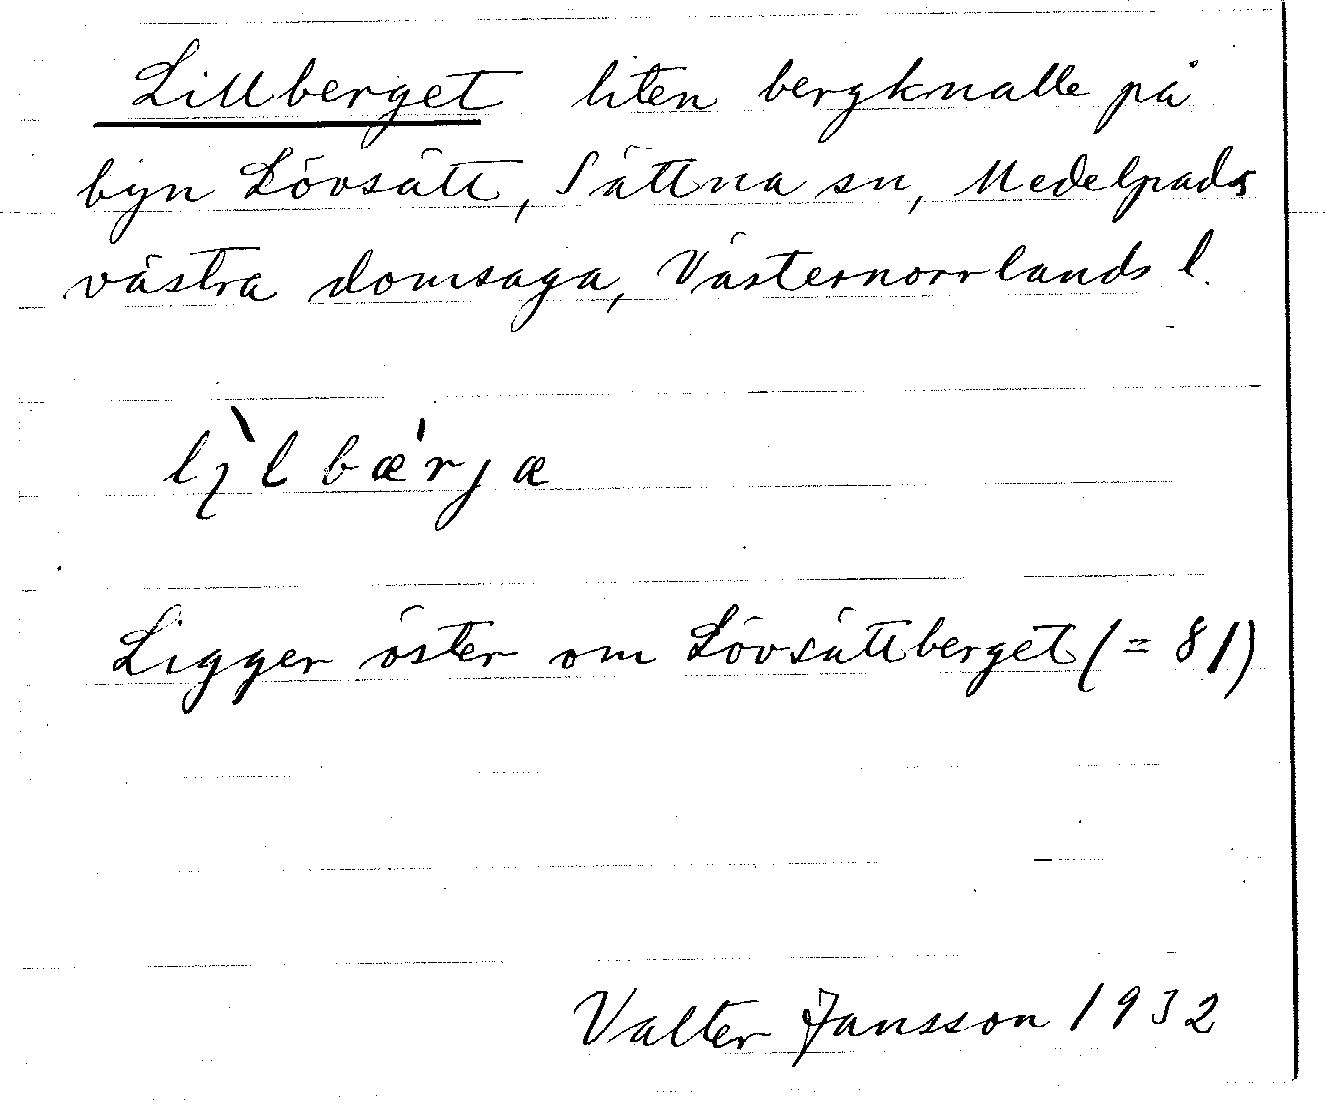 Lillberget liten bergknalle på
byn Lövsätt, Sättna sn, Medelpads
västra domsaga, Västernorrlands l.
lı̀l bæ'rjæ
Ligger öster om Lövsättberget (= 81)
Valter Jansson 1932